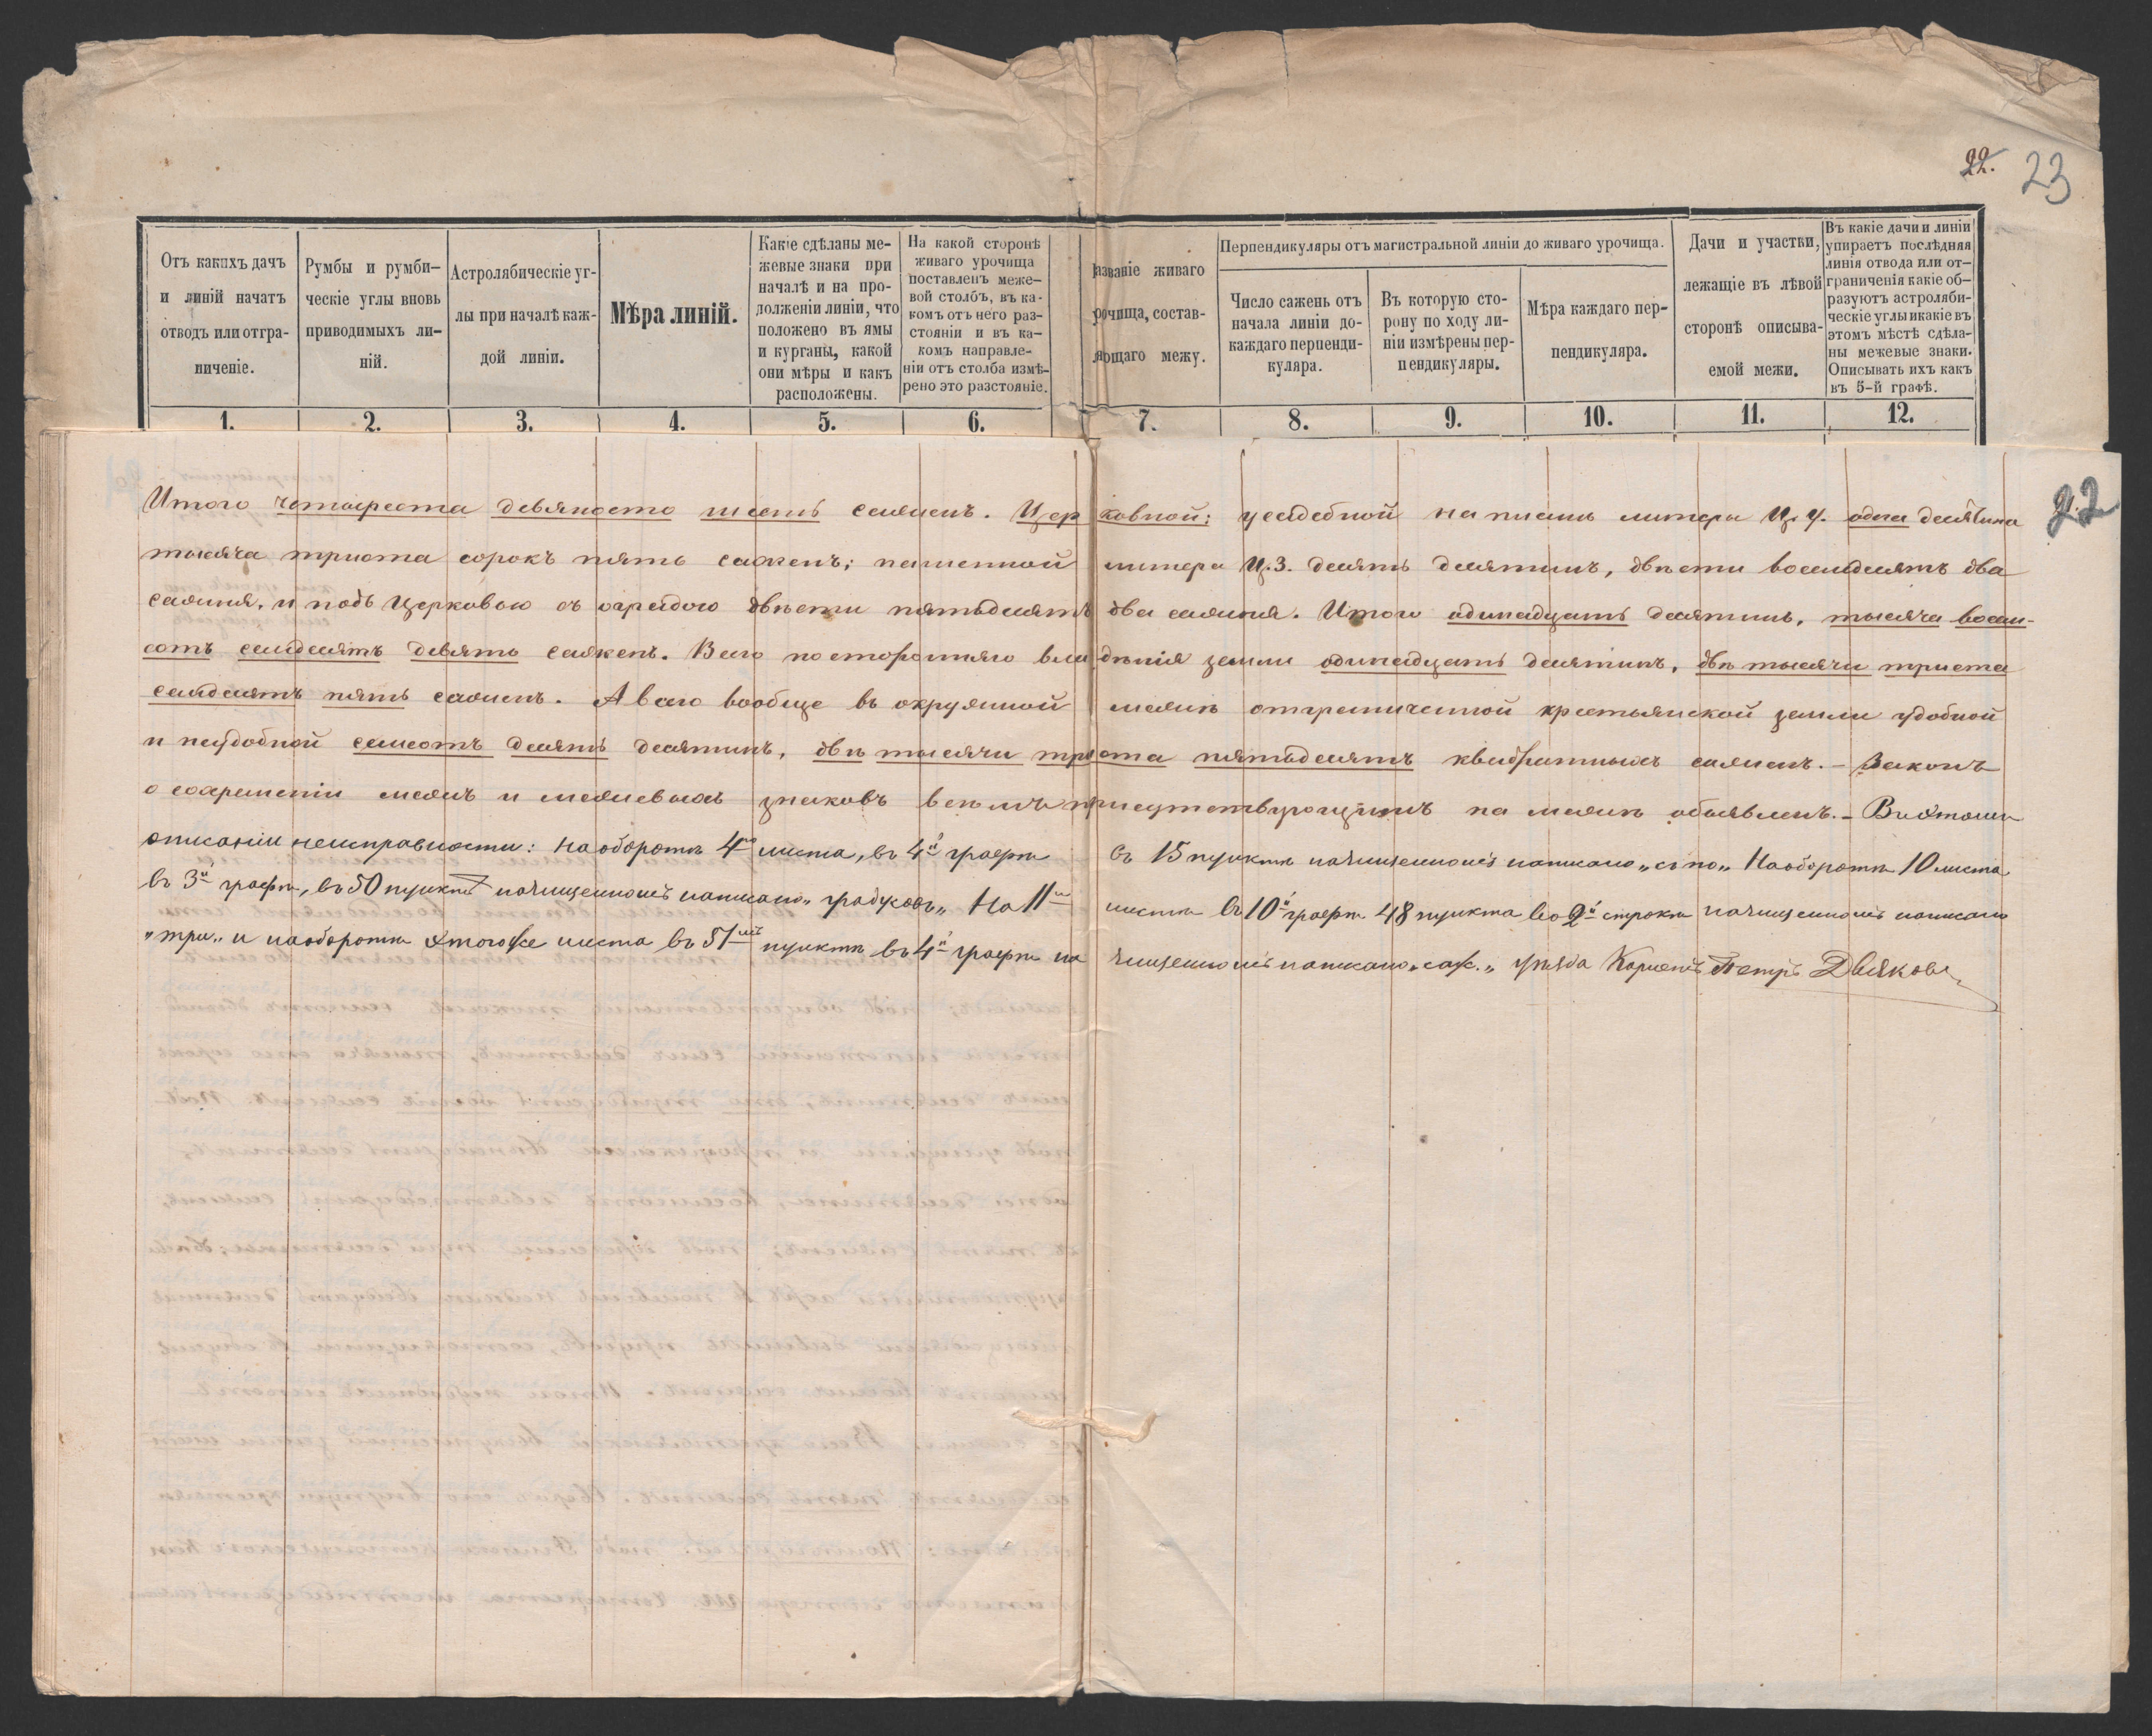 22. 23
Отъ какихъ дачъ и линій начатъ отводъ или отграниченіе.
Румбы и румбическіе углы вновь приводимыхъ линій.
Астролябическіе углы при началѣ каждой линіи.
Мѣра линій.
Какіе сдѣланы межевые знаки при началѣ и на продолженіи линіи, что положено въ ямы и курганы, какой они мѣры и какъ расположены.
На какой сторонѣ живаго урочища поставленъ межевой столбъ, въ какомъ отъ него разстояніи и въ какомъ направленіи отъ столба измѣрено это разстояніе.
названіе живаго урочища, составляющаго межу.
Перпендикуляры отъ магистральной линіи до живаго урочища.
Число сажень отъ начала линіи до каждаго перпендикуляра.
Въ которую сторону по ходу линіи измѣрены перпендикуляры.
Мѣра каждаго перпендикуляра.
Дачи и участки, лежащіе въ лѣвой сторонѣ описываемой межи.
Въ какіе дачи и линіи упираетъ послѣдняя линія отвода или отграниченія какіе образуютъ астролябическіе углы и какіе въ этомъ мѣстѣ сдѣланы межевые знаки. Описывать ихъ какъ въ 5-й графѣ.
1. 2. 3. 4. 5. 6. 7. 8. 9. 10. 11. 12.
22
Итого четыреста девяносто шесть саженъ. Церковной: усадебной на писанъ литеры Ц. У. одна десятина
тысяча триста сорокъ пять саженъ; пашенной литера Ц. З. десять десятинъ, двѣсти восемдесятъ два
сажня, и подъ Церковью съ оградою двѣсти пятьдесятъ два сажня. Итого одинадцать десятинъ, тысяча восем-
сотъ семдесятъ девять саженъ. Всего посторонняго владѣнія земли одинадцать десятинъ, двѣ тысячи триста
семдесятъ пять саженъ. А всего вообще въ окружной межѣ отграниченной крестьянской земли удобной
и неудобной семсотъ десять десятинъ, двѣ тысячи триста пятьдесятъ квадратныхъ саженъ. – Законъ
о сохраненіи межъ и межевыхъ знаковъ всѣмъ присутствующимъ на межѣ объявленъ. – Въ этомъ
описаніи неисправности: На оборотѣ 4го листа, въ 4й графѣ въ 15 пунктѣ почищенномъ написано „съ по„ На оборотѣ 10 листа
въ 3й графѣ, въ 50 пунктѣ почищенномъ написано „градусовъ„ На 11м листѣ въ 10й графѣ 48 пункта во 2й строкѣ почищенномъ написано
„три„ и на оборотѣ этого же листа въ 51мъ пунктѣ въ 4й графѣ по чищенномъ написано „саж.„ Петръ